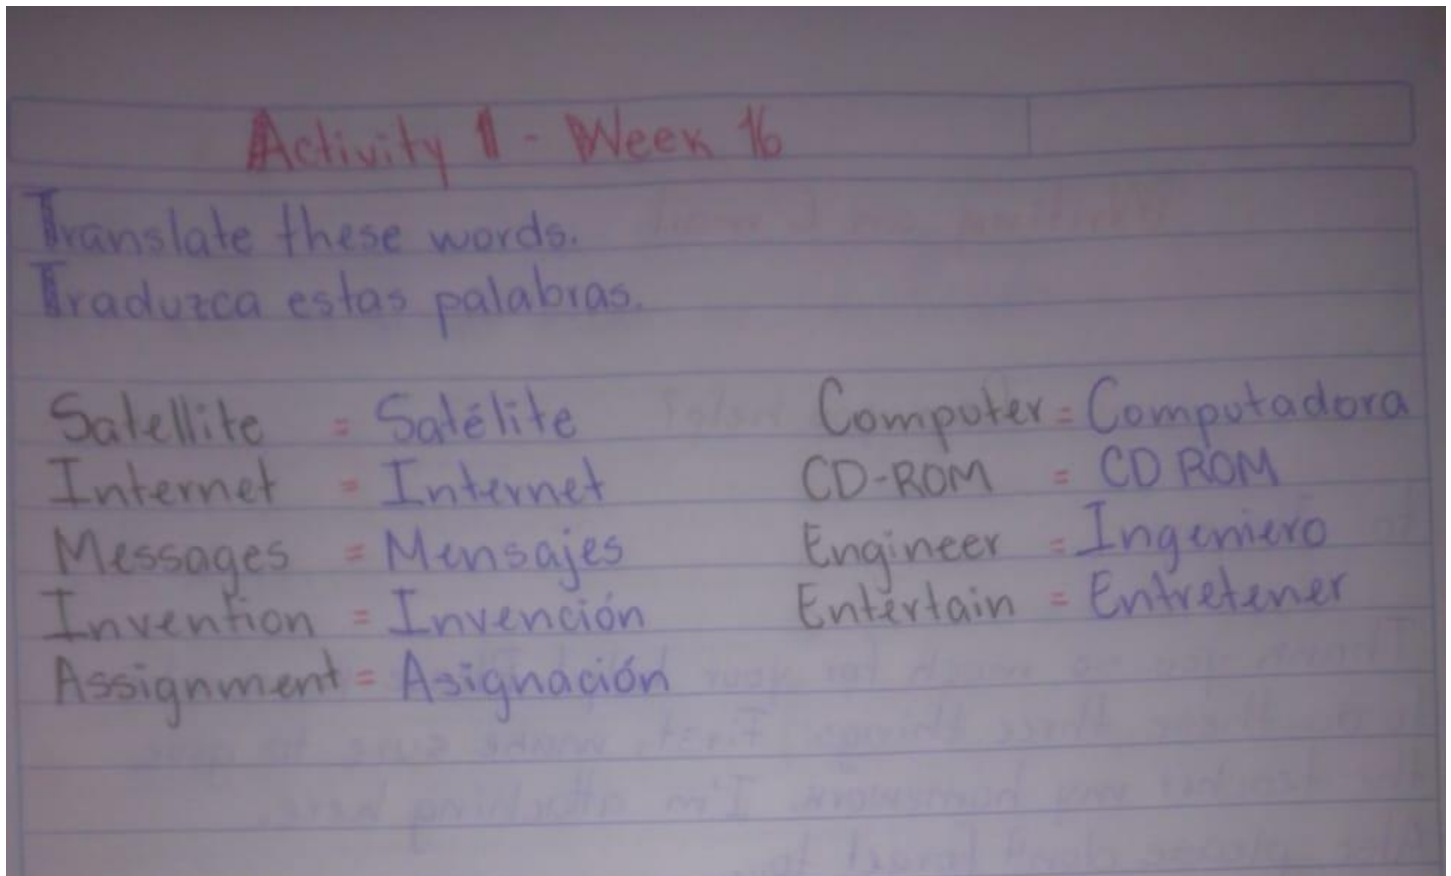 Activity 1 - Week 16
Translate these words.
Traduzca estas palabras.
Satellite = Satélite
Internet = Internet
Messages = Mensajes
Invention = Invención
Assignment = Asignación
Computer = Computadora
CD-ROM = CD ROM
Engineer = Ingeniero
Entertain = Entretener